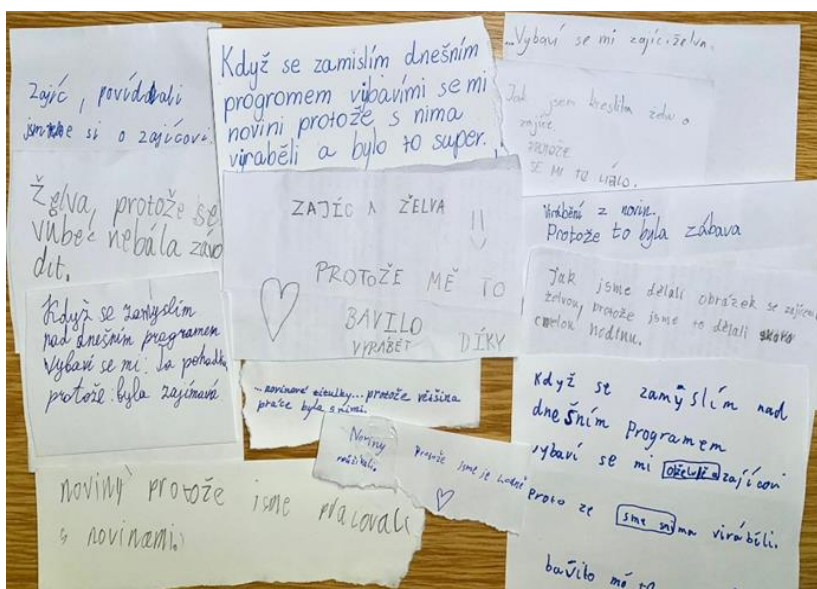 Zajíc, povídali
jsme si o zajícovi.
Želva, protože se
vůbec nebála závo
dit.
Když se zamyslím
nad dnešním programem
Vybaví se mi: Ta pohádka,
protože byla zajímavá
noviny protože jsme pracovali
s novinami.
Když se zamislím dnešním
programem vibavími se mi
novini protože s nima
viraběli a bylo to super.
ZAJÍC A ŽELVA !!
PROTOŽE MĚ TO
BAVILO
VYRÁBĚT DÍKY
...novinové titulky... protože většina
práce byla s nimi.
Noviny
Protože jsme je hodně
...Vybaví se mi zajíc. želva.
Jak jsem kreslila želvu a
zajíce.
PROTOŽE
SE MI TO LÍBILO.
Virábění z novin.
Protože to byla zábava
Jak jsme dělali obrázek se zajícem
želvou, protože jsme to dělali skoro
celou hodinu.
Když se zamyslím nad
dnešním Programem
vybaví se mi zajícovi
proto ze sme snima viráběli.
bavilo mě to